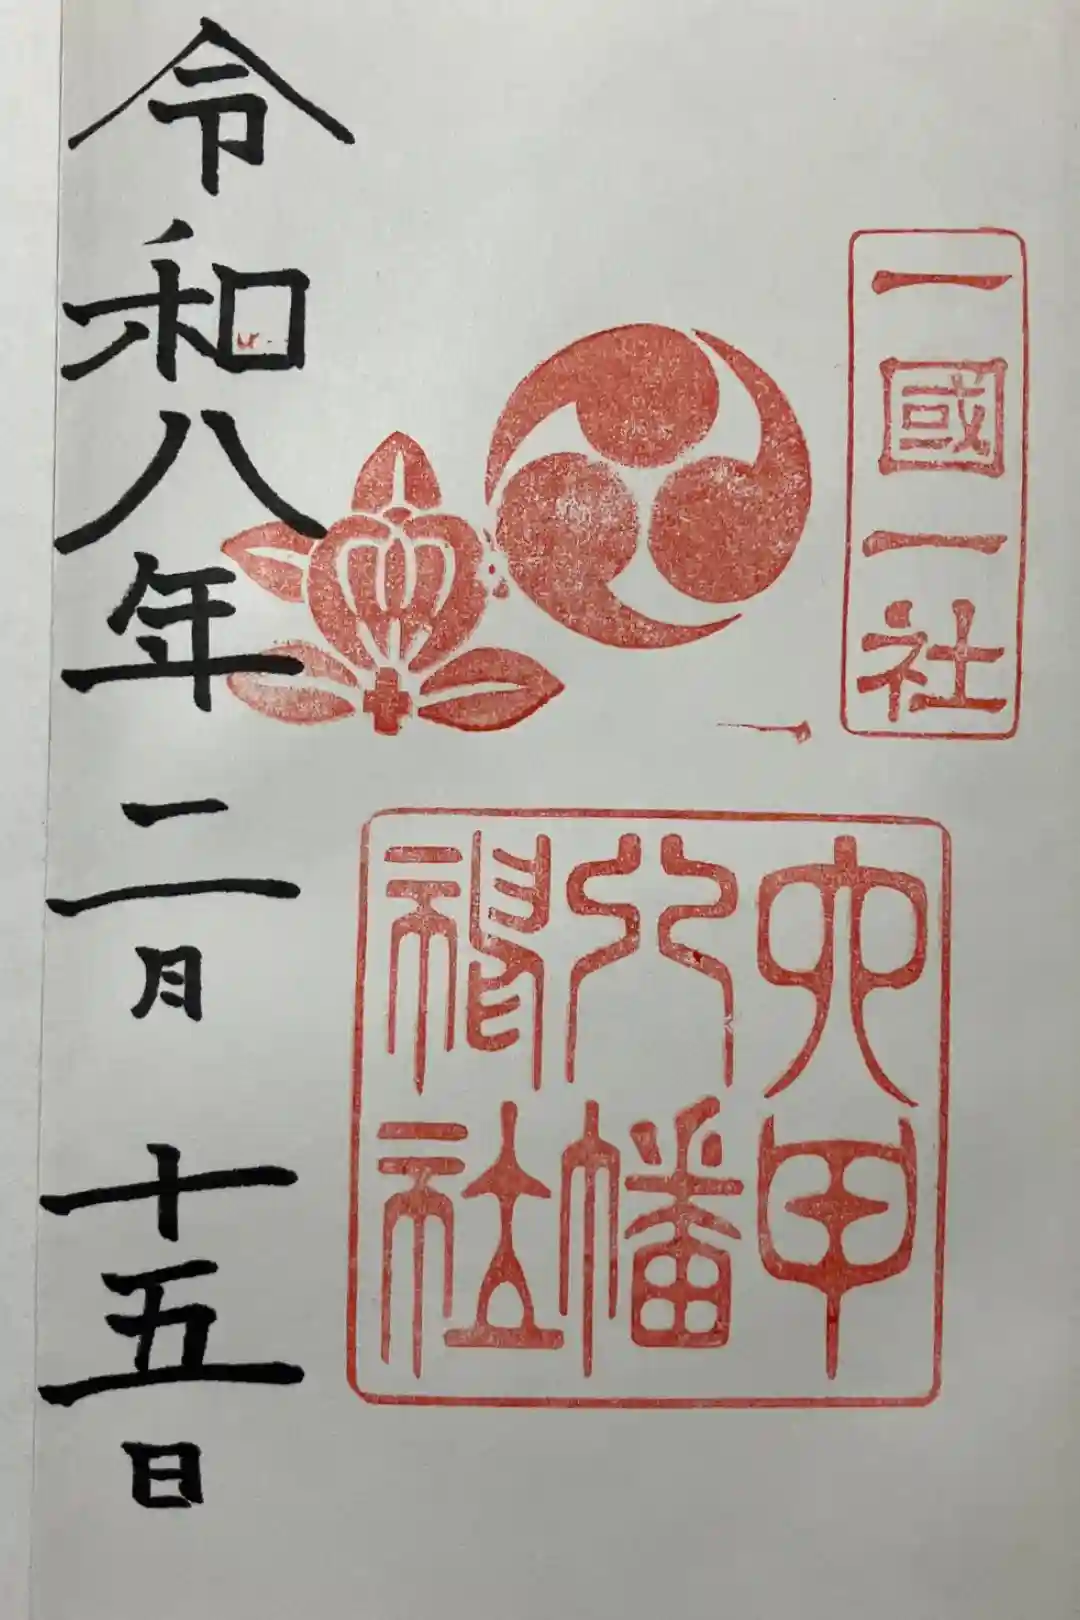 一國一社
六甲
八幡
神社
令和八年二月十五日